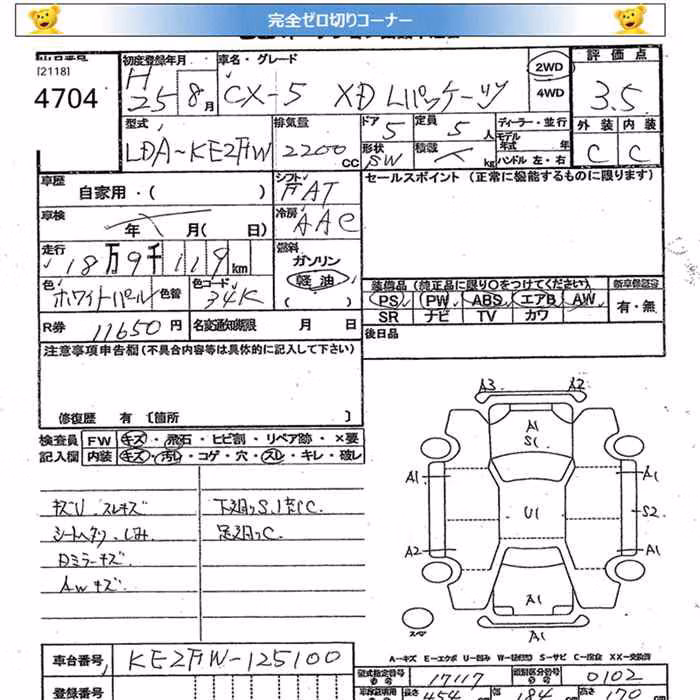 完全ゼロ切りコーナー
[2118]
4704
初度登録年月
H 25 8月
車名・グレード
CX-5 XD Lパッケージ
2WD
4WD
評価点
3.5
外装 内装
C C
型式
LDA-KE2FW
排気量
2200 cc
ドア 5
形状 SW
定員 5 人
積載 kg
ディーラー・並行
モデル年式 年
ハンドル 左・右
車歴
自家用・( )
シフト
FAT
セールスポイント (正常に機能するものに限ります)
車検
年 月( 日)
冷房
AAC
走行
18万9千119km
燃料
ガソリン
軽油
( )
色
ホワイトパール
色替
色コード
34K
装備品 (純正品に限り○をつけてください)
PS PW ABS エアB AW
SR ナビ TV カワ
有・無
R券 11650円
名変通知期限 月 日
後日品
注意事項申告欄 (不具合内容等は具体的に記入して下さい)
修復歴 有 〔箇所 〕
検査員記入欄
FW キズ・飛石・ヒビ割・リペア跡・×要
内装 キズ・汚レ・コゲ・穴・スレ・キレ・破レ
キズU スレキズ
シートヘタリ、しみ
Dミラーキズ
AWキズ
下廻りS、
足廻りC
A3 A2
A1
S1
A1 A1
U1 S2
A2 A1
A1
A1
スペア
A-キズ E-エクボ U-凹み W-補修跡 S-サビ C-腐食 XX-交換済
車台番号 KE2FW-125100
型式指定番号 17117
類別区分番号 0102
登録番号
長さ 454 幅 184 高さ 170